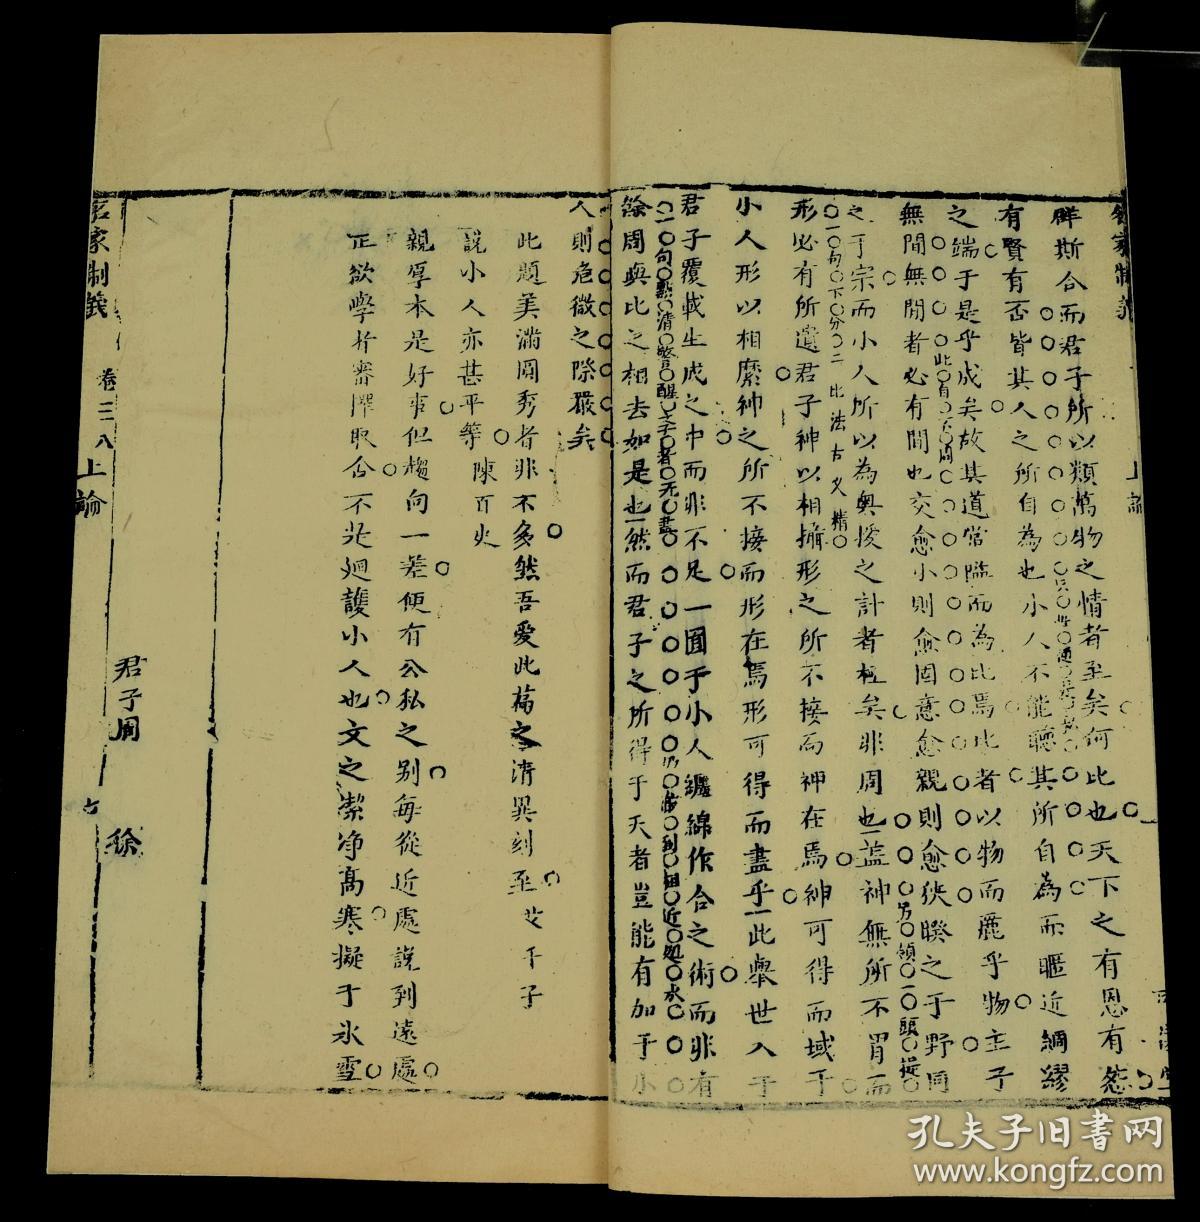 群斯合而君子所以類萬物之情者至矣何比也天下之有恩有怨
有賢有否皆其人之所自為也小人不能聽其所自為而暱近綢繆
之端于是乎成矣故其道常隘而為比焉比者以物而麗乎物主子
無間無間者必有間也交愈小則愈固意愈親則愈狹睽之于野同
之于宗而小人所以為奥援之計者極矣非周也蓋神無所不周而
形必有所遺君子神以相攝形之所不接而神在焉神可得而域乎
小人形以相縻神之所不接而形在焉形可得而盡乎此舉世入于
君子覆載生成之中而非不足一囿于小人纏綿作合之術而非有
餘周與比之相去如是也然而君子之所得于天者豈能有加于小
人則危微之際嚴矣
此題美滿周秀者非不多然吾愛此篇之清異刻至 艾千子
說小人亦甚平等 陳百史
親厚本是好事但趨向一差便有公私之别每從近處說到遠處
正欲學者審擇取舍不是廻護小人也文之潔净高寒擬于氷雪
名家制義
卷三八
上論
君子周
徐
孔夫子旧书网
www.kongfz.com